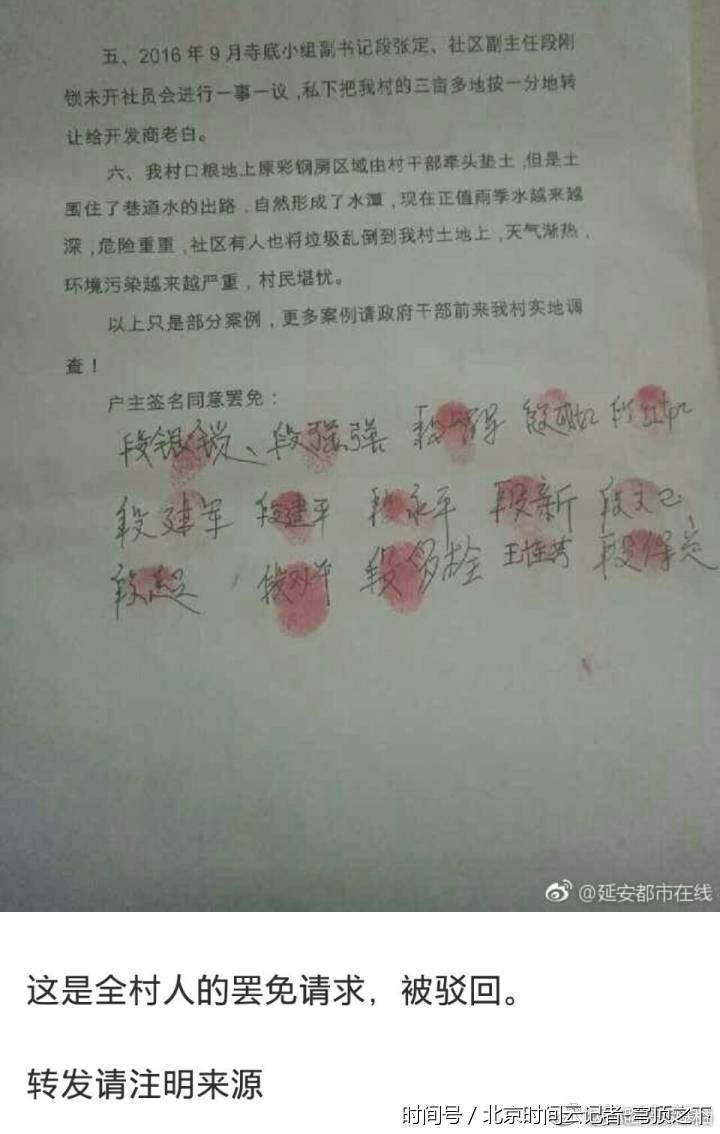 五、2016年9月寺底小组副书记段张定、社区副主任段刚
锁未开社员会进行一事一议，私下把我村的三亩多地按一分地转
让给开发商老白。
六、我村口粮地上原彩钢房区域由村干部牵头垫土，但是土
围住了巷道水的出路，自然形成了水潭，现在正值雨季水越来越
深，危险重重，社区有人也将垃圾乱倒到我村土地上，天气渐热，
环境污染越来越严重，村民堪忧。
以上只是部分案例，更多案例请政府干部前来我村实地调
查！
户主签名同意罢免：
段银锁、段强强
段建军 段建平 段永平 段新 段文
段 段 平 段 栓 王佳芳 段保
@延安都市在线
这是全村人的罢免请求，被驳回。
转发请注明来源
时间号 / 北京时间云记者-穹顶之下